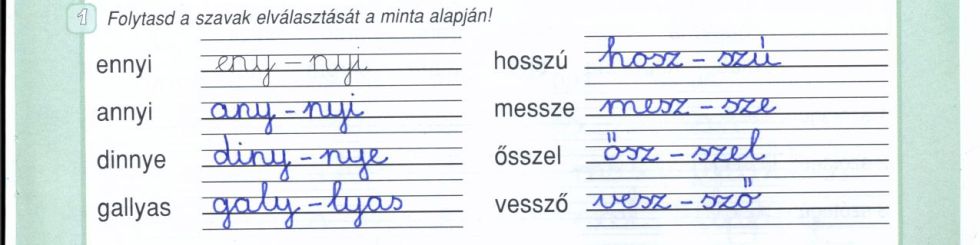 1 Folytasd a szavak elválasztását a minta alapján!
ennyi eny - nyi
annyi any - nyi
dinnye diny - nye
gallyas galy - lyas
hosszú hosz - szú
messze mesz - sze
ősszel ősz - szel
vessző vesz - sző